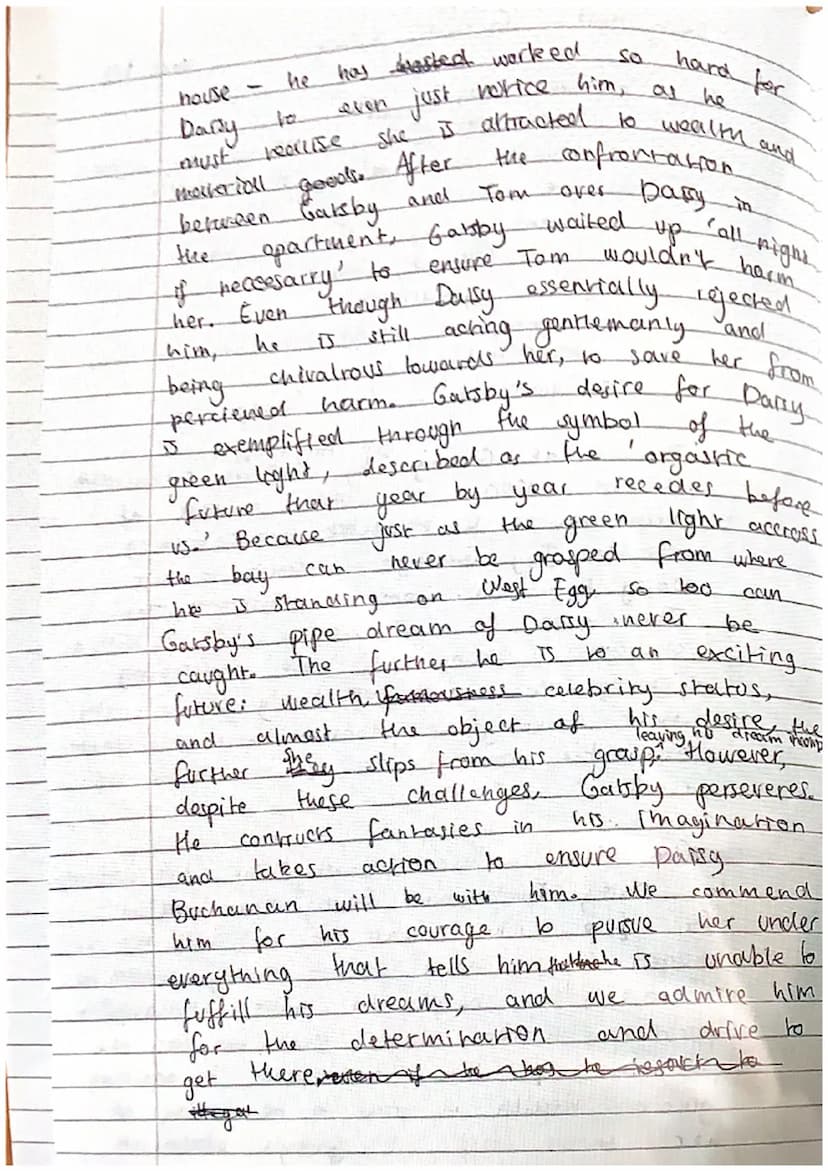 house – he has worked so hard for
Daisy to even just notice him, as he
must realise she is attracted to wealth and
material goods. After the confrontation
between Gatsby and Tom over Daisy in
the apartment, Gatsby waited up 'all night
if neccesarry' to ensure Tom wouldn't harm
her. Even though Daisy essentially rejected
him, he is still acting gentlemanly and
being chivalrous towards her, to save her from
percieved harm. Gatsby's desire for Daisy
is exemplified through the symbol of the
green light, described as the 'orgastic
future that year by year recedes before
us.' Because just as the green light accross
the bay can never be grasped from where
he is standing on West Egg so too can
Gatsby's pipe dream of Daisy never be
caught. The further he is to an exciting
future: wealth, celebrity status,
and almost the object of his desire, the
further she slips from his grasp, leaving his dream However,
despite these challenges, Gatsby perseveres.
He contructs fantasies in his imagination
and takes action to ensure Daisy
Buchanan will be with him. We commend
him for his courage to pursue her under
everything that tells him he is unable to
fuffill his dreams, and we admire him
for the determination and drive to
get there